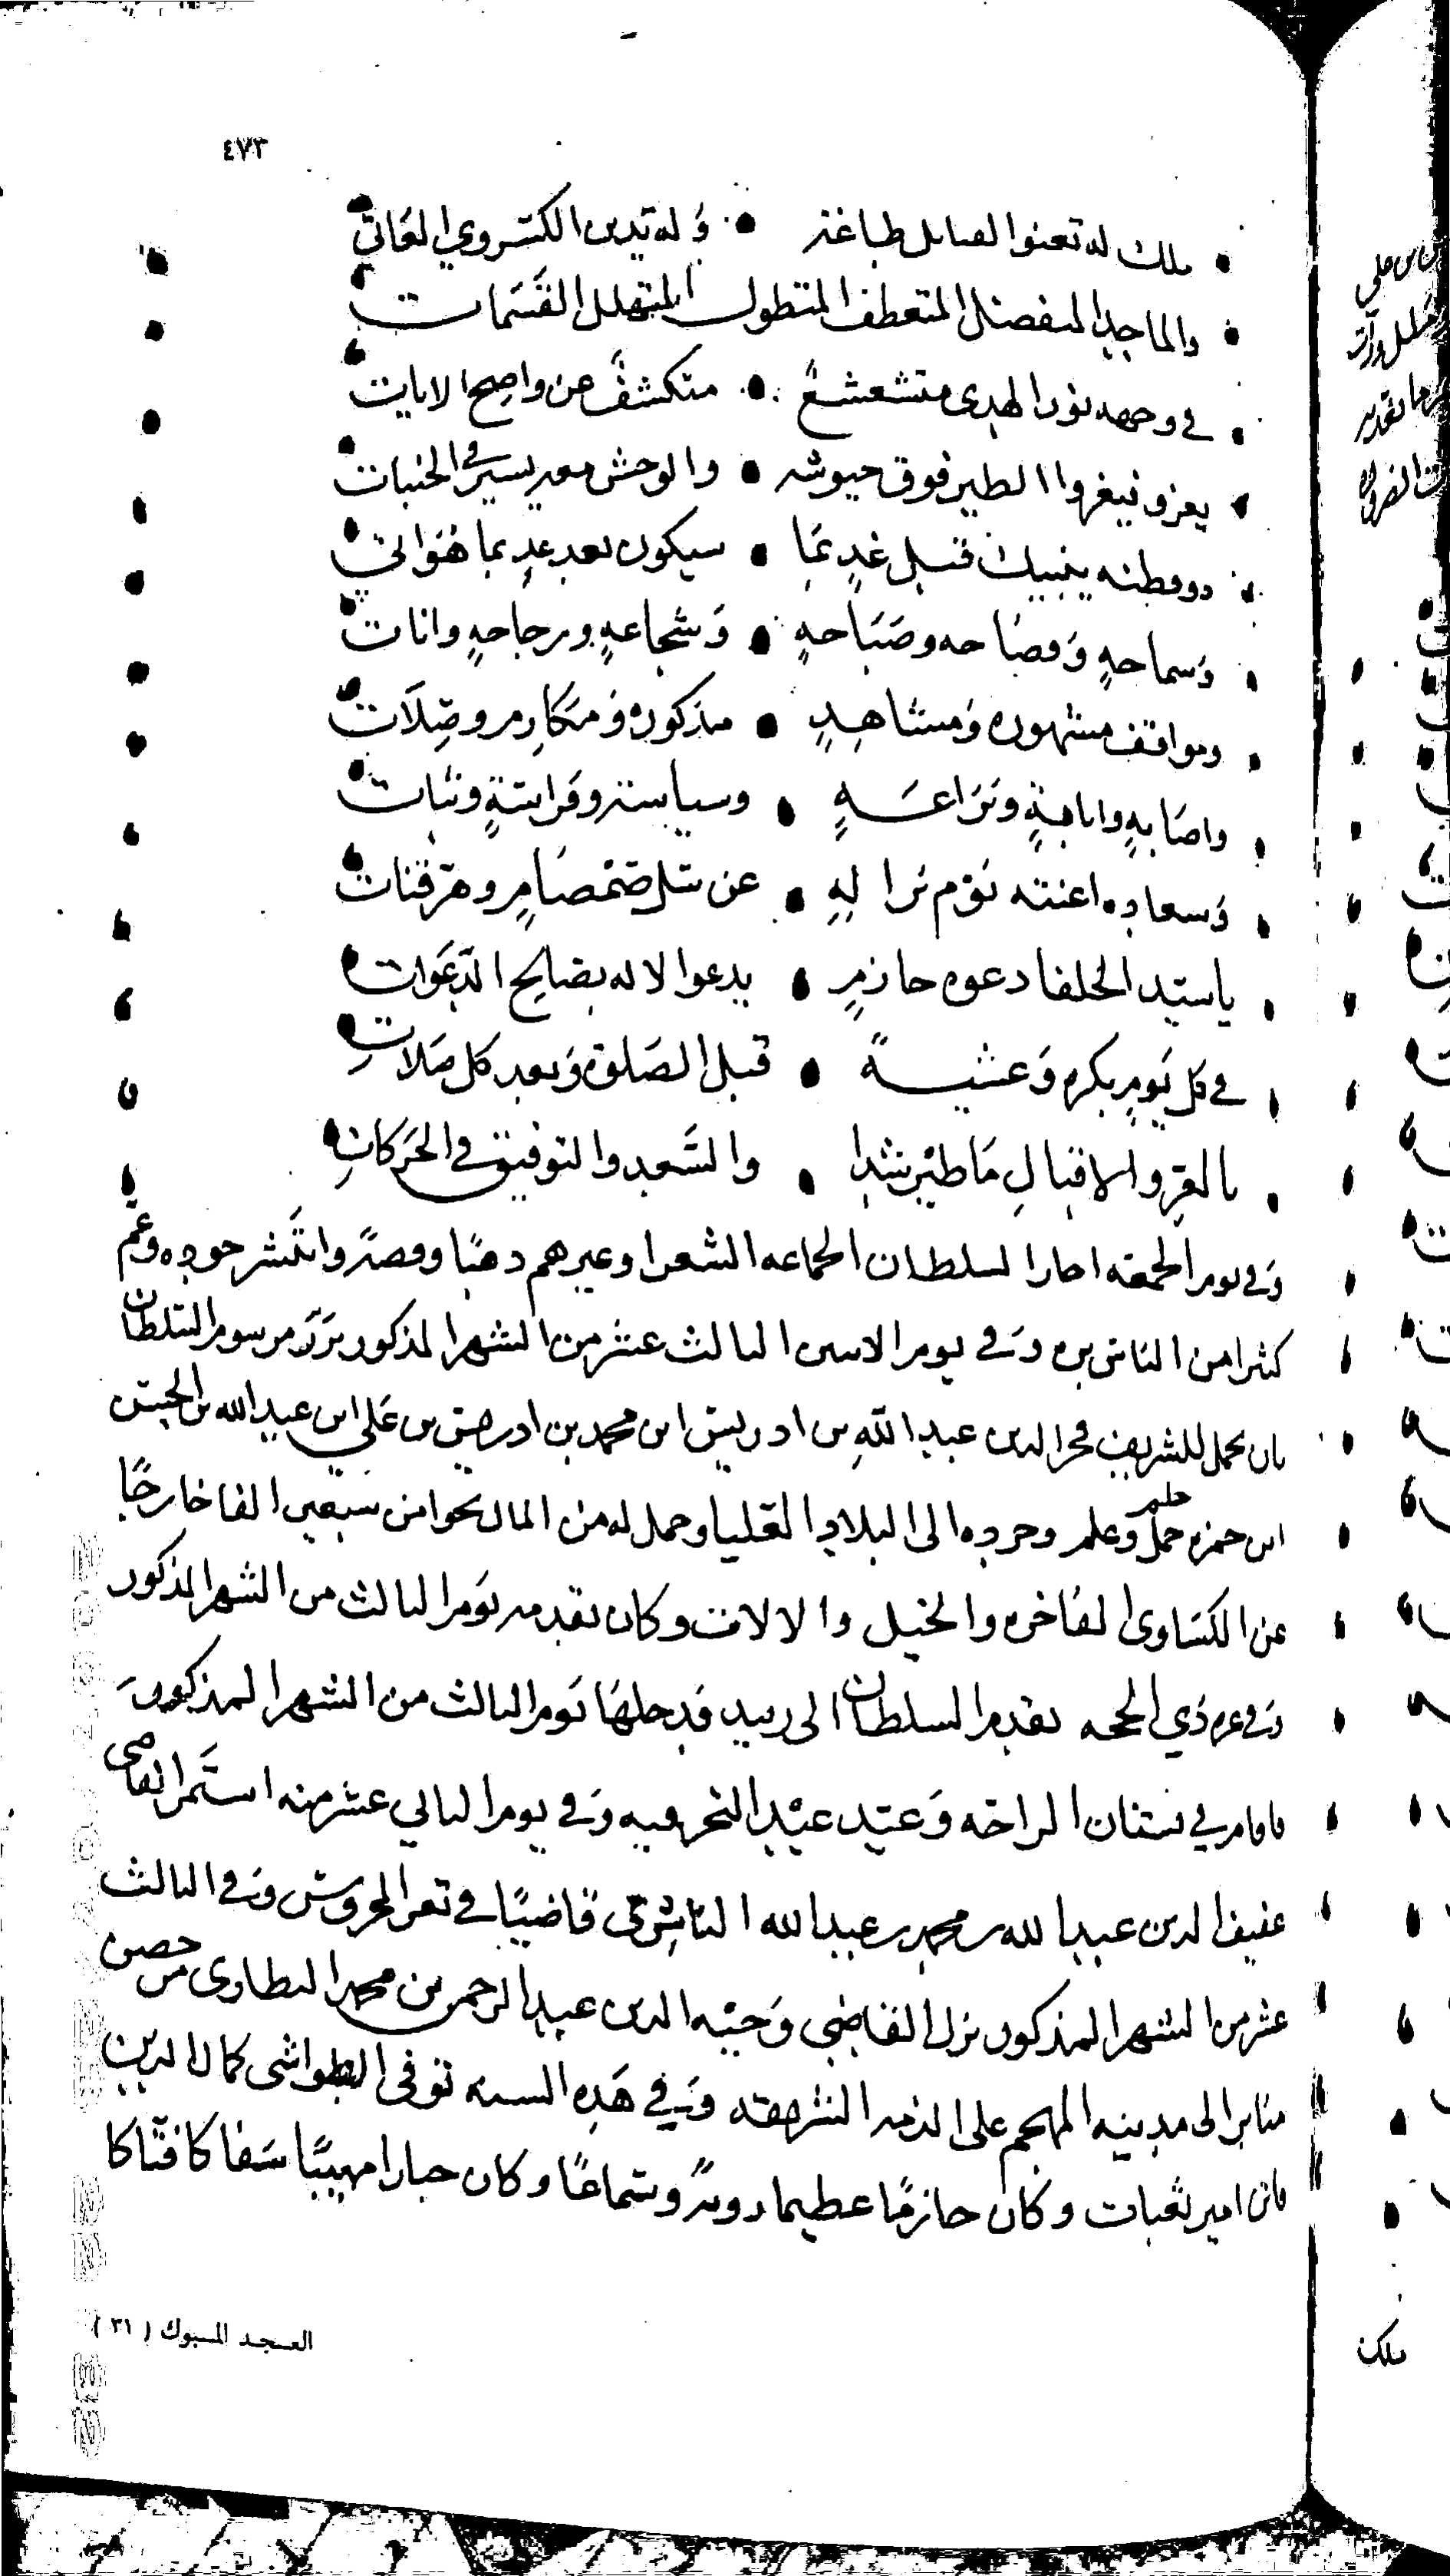 ٤٧٣
ملك له تعنوا القبايل طاعة • وله تدين الكسروي العاتي
والماجد المفضل المتعطف المتطول المتهلل القسمات
في وجهه نور الهدى متشعشع • متكشف عن واضح الايات
يغزو فيغزوا الطير فوق جيوشه • والوحش معه يسير في الخبات
ذو فطنه ينبيك قبل غد بما • سيكون بعد غد بما هو اتي
وسماحه وفصاحه وصباحه • وشجاعه ورجاحه وانات
ومواقف مشهوره ومشاهد • مذكوره ومكارم وصلات
واصابه وانابة وبراعه • وسياسة وفراسة وثبات
وسعاده اغنته يوم نزاله • عن سل صمصام وهز قنات
ياسيد الخلفا دعوه حازم • يدعوا الاله بصالح الدعوات
في كل يوم بكره وعشية • قبل الصلوة وبعد كل صلات
بالعز والاقبال ما طير شدا • والسعد والتوفيق في الحركات
وفي يوم الجمعه اجاز السلطان الجماعه الشعرا وغيرهم ذهبا وفضة وانتشر جوده وعم
كثيرا من الناس بره وفي يوم الاثنين الثالث عشر من الشهر المذكور برز مرسوم السلطان
بان يحمل للشريف فخر الدين عبد الله بن ادريس ابن محمد بن ادريس بن علي ابن عبد الله بن الحسن
ابن حمزه حمل وعلم وجرده الى البلاد العليا وحمل له من المال نحوا من سبعين الفا خارجا
عن الكساوي الفاخره والخيل والالات وكان تقدمه يوم الثالث من الشهر المذكور
وفي غره ذي الحجه تقدم السلطان الى زبيد فدخلها يوم الثالث من الشهر المذكور
فاقام في بستان الراحه وعيد عيد النحر فيه وفي يوم الثاني عشر منه استمر القاضي
عفيف الدين عبد الله بن محمد بن عبد الله الناشري قاضيا في تعز المحروس وفي الثالث
عشر من الشهر المذكور نزل القاضي وجيه الدين عبد الرحمن بن محمد النظاري من حصن
منابر الى مدينه المهجم على الذمه الشريفه وفي هذه السنه توفى الطواشي كمال الدين
فاتن امير ثعبات وكان حازما عظيما دونه وشماعا وكان جبارا مهيبا سفاكا فتاكا
العسجد المسبوك ( ٣١ )
ملك